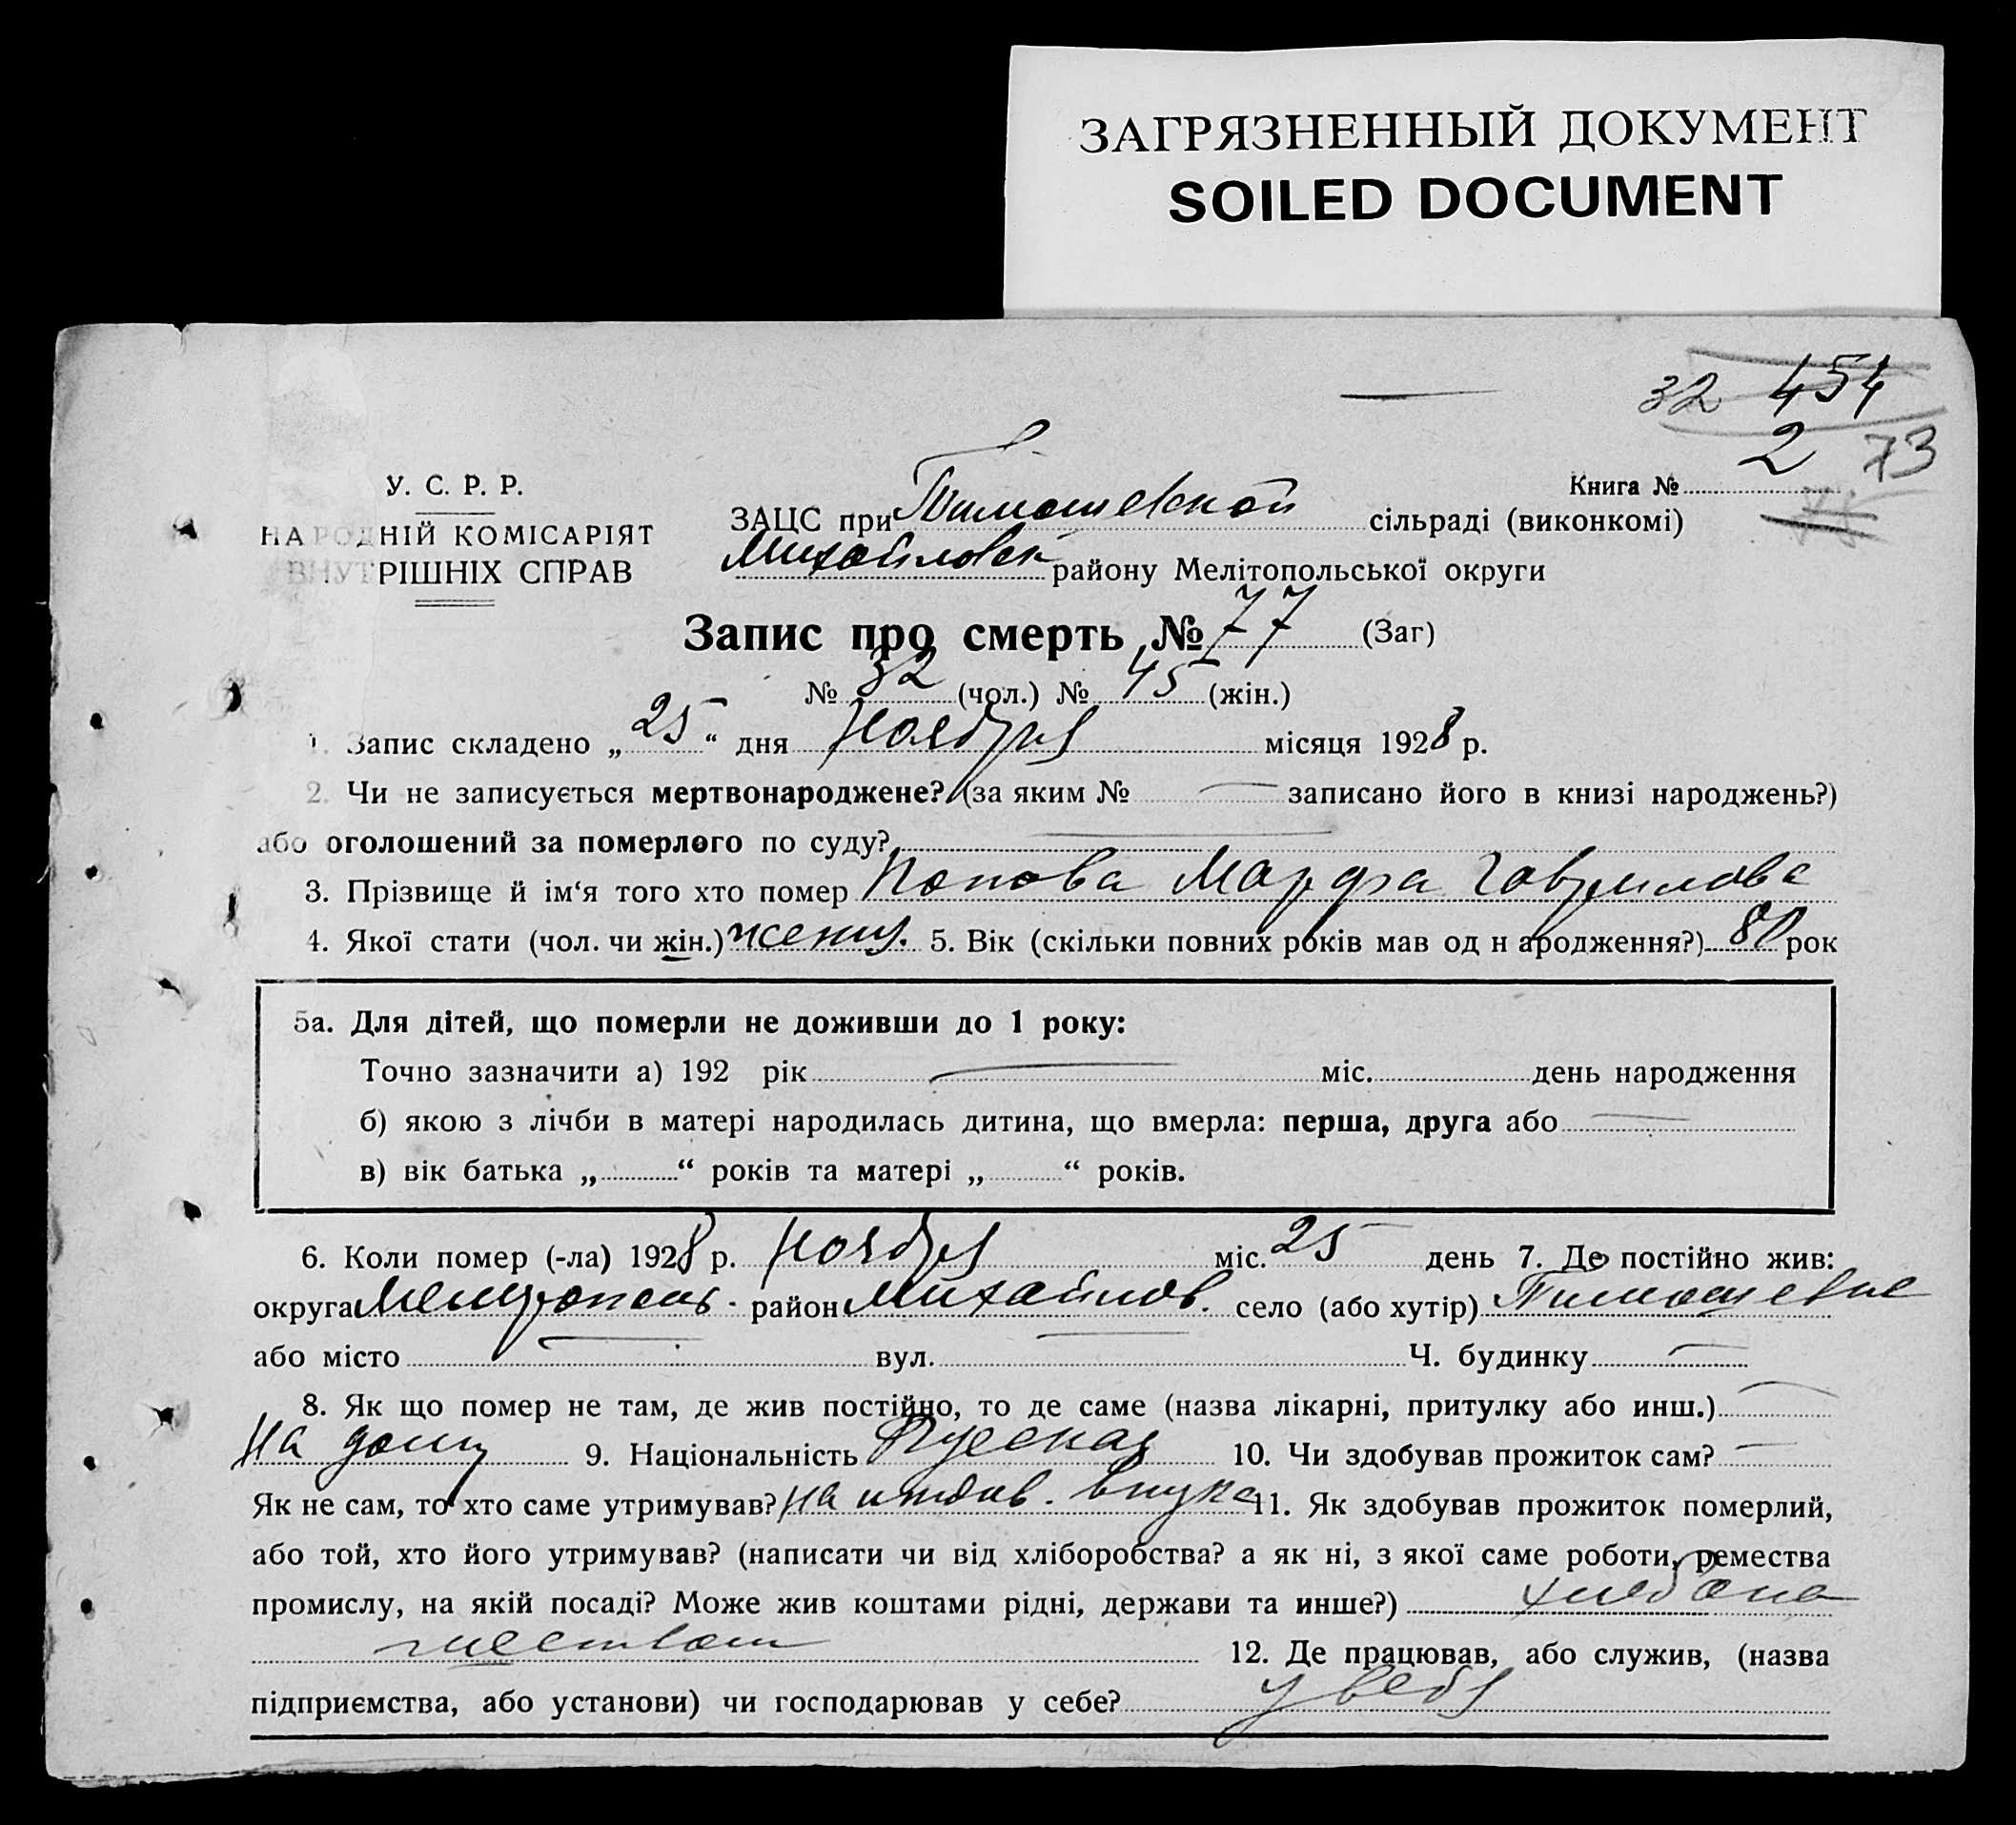 ЗАГРЯЗНЕННЫЙ ДОКУМЕНТ
SOILED DOCUMENT
32 454
2 73
У. С. Р. Р.
НАРОДНІЙ КОМІСАРІЯТ
ВНУТРІШНІХ СПРАВ
Книга №
ЗАЦС при Тимошевской сільраді (виконкомі)
Михайловск району Мелітопольської округи
Запис про смерть № 77 (Заг)
№ 32 (чол.) № 45 (жін.)
1. Запис складено „ 25 “ дня Ноября місяця 1928 р.
2. Чи не записується мертвонароджене? (за яким № — записано його в книзі народжень?)
або оголошений за померлого по суду? —
3. Прізвище й ім‘я того хто помер Попова Марфа Гаврилова
4. Якої стати (чол. чи жін.) женщ. 5. Вік (скільки повних років мав од н ародження?) 80 рок
5а. Для дітей, що померли не доживши до 1 року:
Точно зазначити а) 192 рік — міс. день народження
б) якою з лічби в матері народилась дитина, що вмерла: перша, друга або —
в) вік батька „ “ років та матері „ “ років.
6. Коли помер (-ла) 1928 р. Ноября міс. 25 день 7. Де постійно жив:
округа Мелитополь. район Михайлов. село (або хутір) Тимошевке
або місто — вул. — Ч. будинку —
8. Як що помер не там, де жив постійно, то де саме (назва лікарні, притулку або инш.) —
На дому 9. Національність Русская 10. Чи здобував прожиток сам? —
Як не сам, то хто саме утримував? На иждив. внука 11. Як здобував прожиток померлий,
або той, хто його утримував? (написати чи від хліборобства? а як ні, з якої саме роботи, ремества
промислу, на якій посаді? Може жив коштами рідні, держави та инше?) хлебопа
шеством 12. Де працював, або служив, (назва
підприємства, або установи) чи господарював у себе? у себя